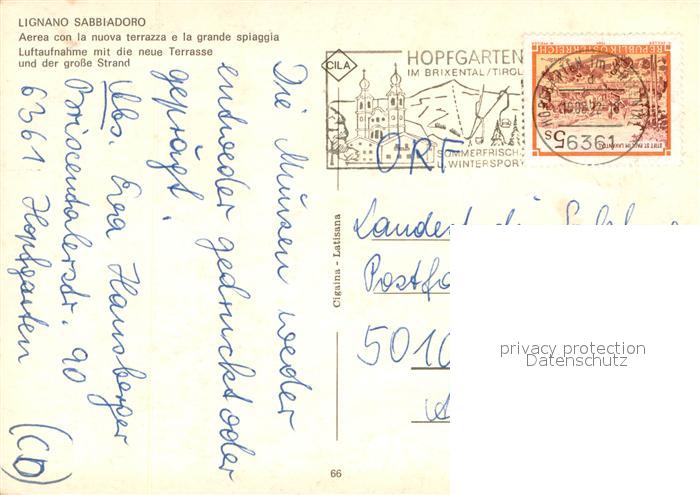 LIGNANO SABBIADORO
Aerea con la nuova terrazza e la grande spiaggia
Luftaufnahme mit die neue Terrasse
und der große Strand
Die Münzen weder
entweder gedruckt oder
geprägt.
Abs. Eva Hausberger
Brixentalerstr. 90
6361 Hopfgarten
(CD)
Cigaina - Latisana
66
CILA
HOPFGARTEN
IM BRIXENTAL/TIROL
SOMMERFRISCHE
U. WINTERSPORT
REPUBLIK ÖSTERREICH
5 S
STIFT ST. PAUL IM LAVANTTAL
6361
ORF
Landesstudio
Postfa
5010
privacy protection
Datenschutz